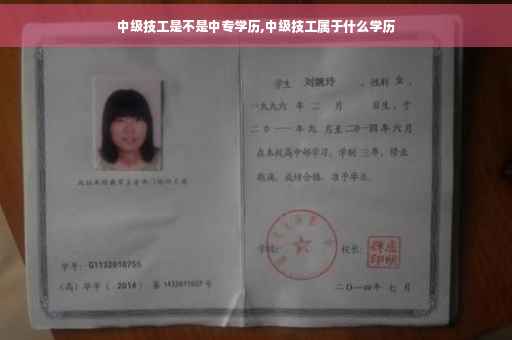 中级技工是不是中专学历,中级技工属于什么学历
学生 刘婉玲 ,性别 女 ,
一九九六 年 二 月 日生,于
二〇一一 年 九 月至 二〇一四 年 六 月
在本校高中部学习,学制 三 年,修业
期满,成绩合格,准予毕业。
学校: 校长:
二〇一四年 七 月
学号: G1132010755
(高)毕字( 2014 )第 1432011027 号